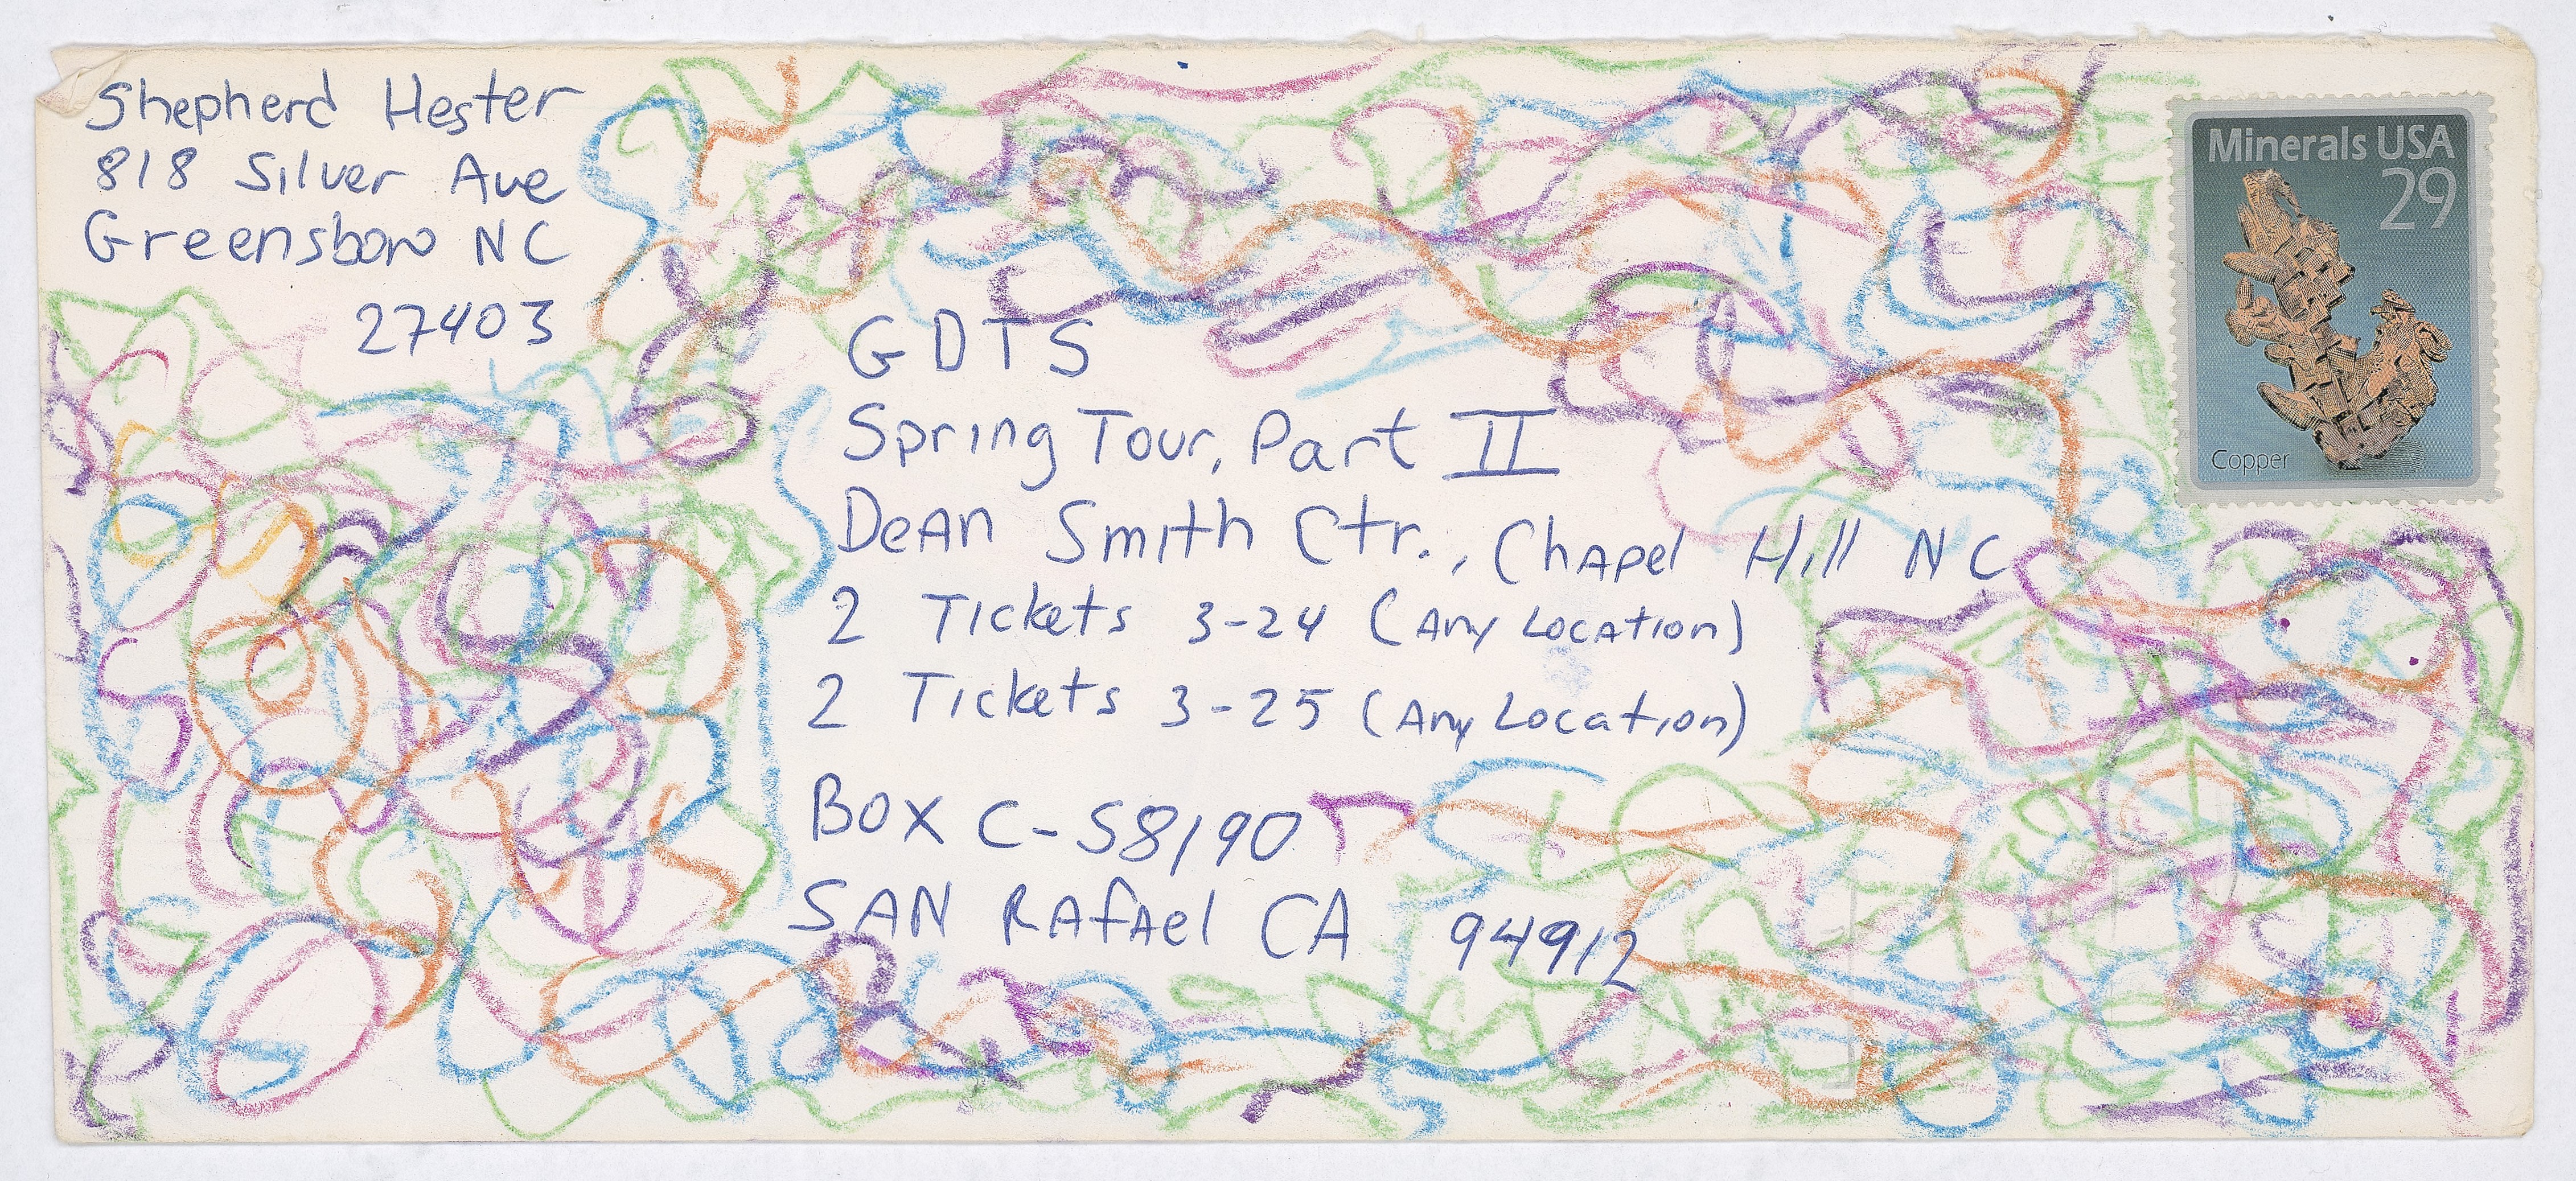 Shepherd Hester
818 Silver Ave
Greensboro NC
27403
Minerals USA
29
Copper
GDTS
Spring Tour, Part II
Dean Smith Ctr., Chapel Hill NC
2 Tickets 3-24 (Any Location)
2 Tickets 3-25 (Any Location)
Box C-S8190
SAN RAfAel CA 94912